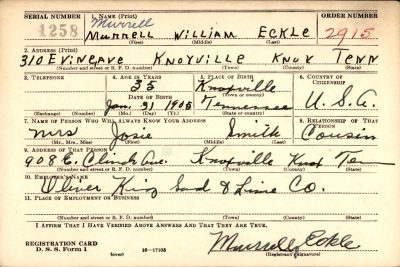 SERIAL NUMBER 1. NAME (Print) ORDER NUMBER
Murrell
1258 MURRELL WILLIAM ECKLE 2915
(First) (Middle) (Last)
2. ADDRESS (Print)
310 E. VINE AVE KNOXVILLE KNOX TENN
(Number and street or R. F. D. number) (Town) (County) (State)
3. TELEPHONE 4. AGE IN YEARS 5. PLACE OF BIRTH 6. COUNTRY OF CITIZENSHIP
35 Knoxville
DATE OF BIRTH (Town or county)
Jan. 31 1905 Tennessee U.S.A.
(Exchange) (Number) (Mo.) (Day) (Yr.) (State or country)
7. NAME OF PERSON WHO WILL ALWAYS KNOW YOUR ADDRESS 8. RELATIONSHIP OF THAT PERSON
Mrs Josie Smith Cousin
(Mr., Mrs., Miss) (First) (Middle) (Last)
9. ADDRESS OF THAT PERSON
908 E. Clinch Ave. Knoxville Knox Tenn
(Number and street or R. F. D. number) (Town) (County) (State)
10. EMPLOYER'S NAME
Oliver King Sand & Lime Co.
11. PLACE OF EMPLOYMENT OR BUSINESS
(Number and street or R. F. D. number) (Town) (County) (State)
I AFFIRM THAT I HAVE VERIFIED ABOVE ANSWERS AND THAT THEY ARE TRUE.
REGISTRATION CARD
D. S. S. Form 1 (over) 16—17105 Murrell Eckle
(Registrant's signature)